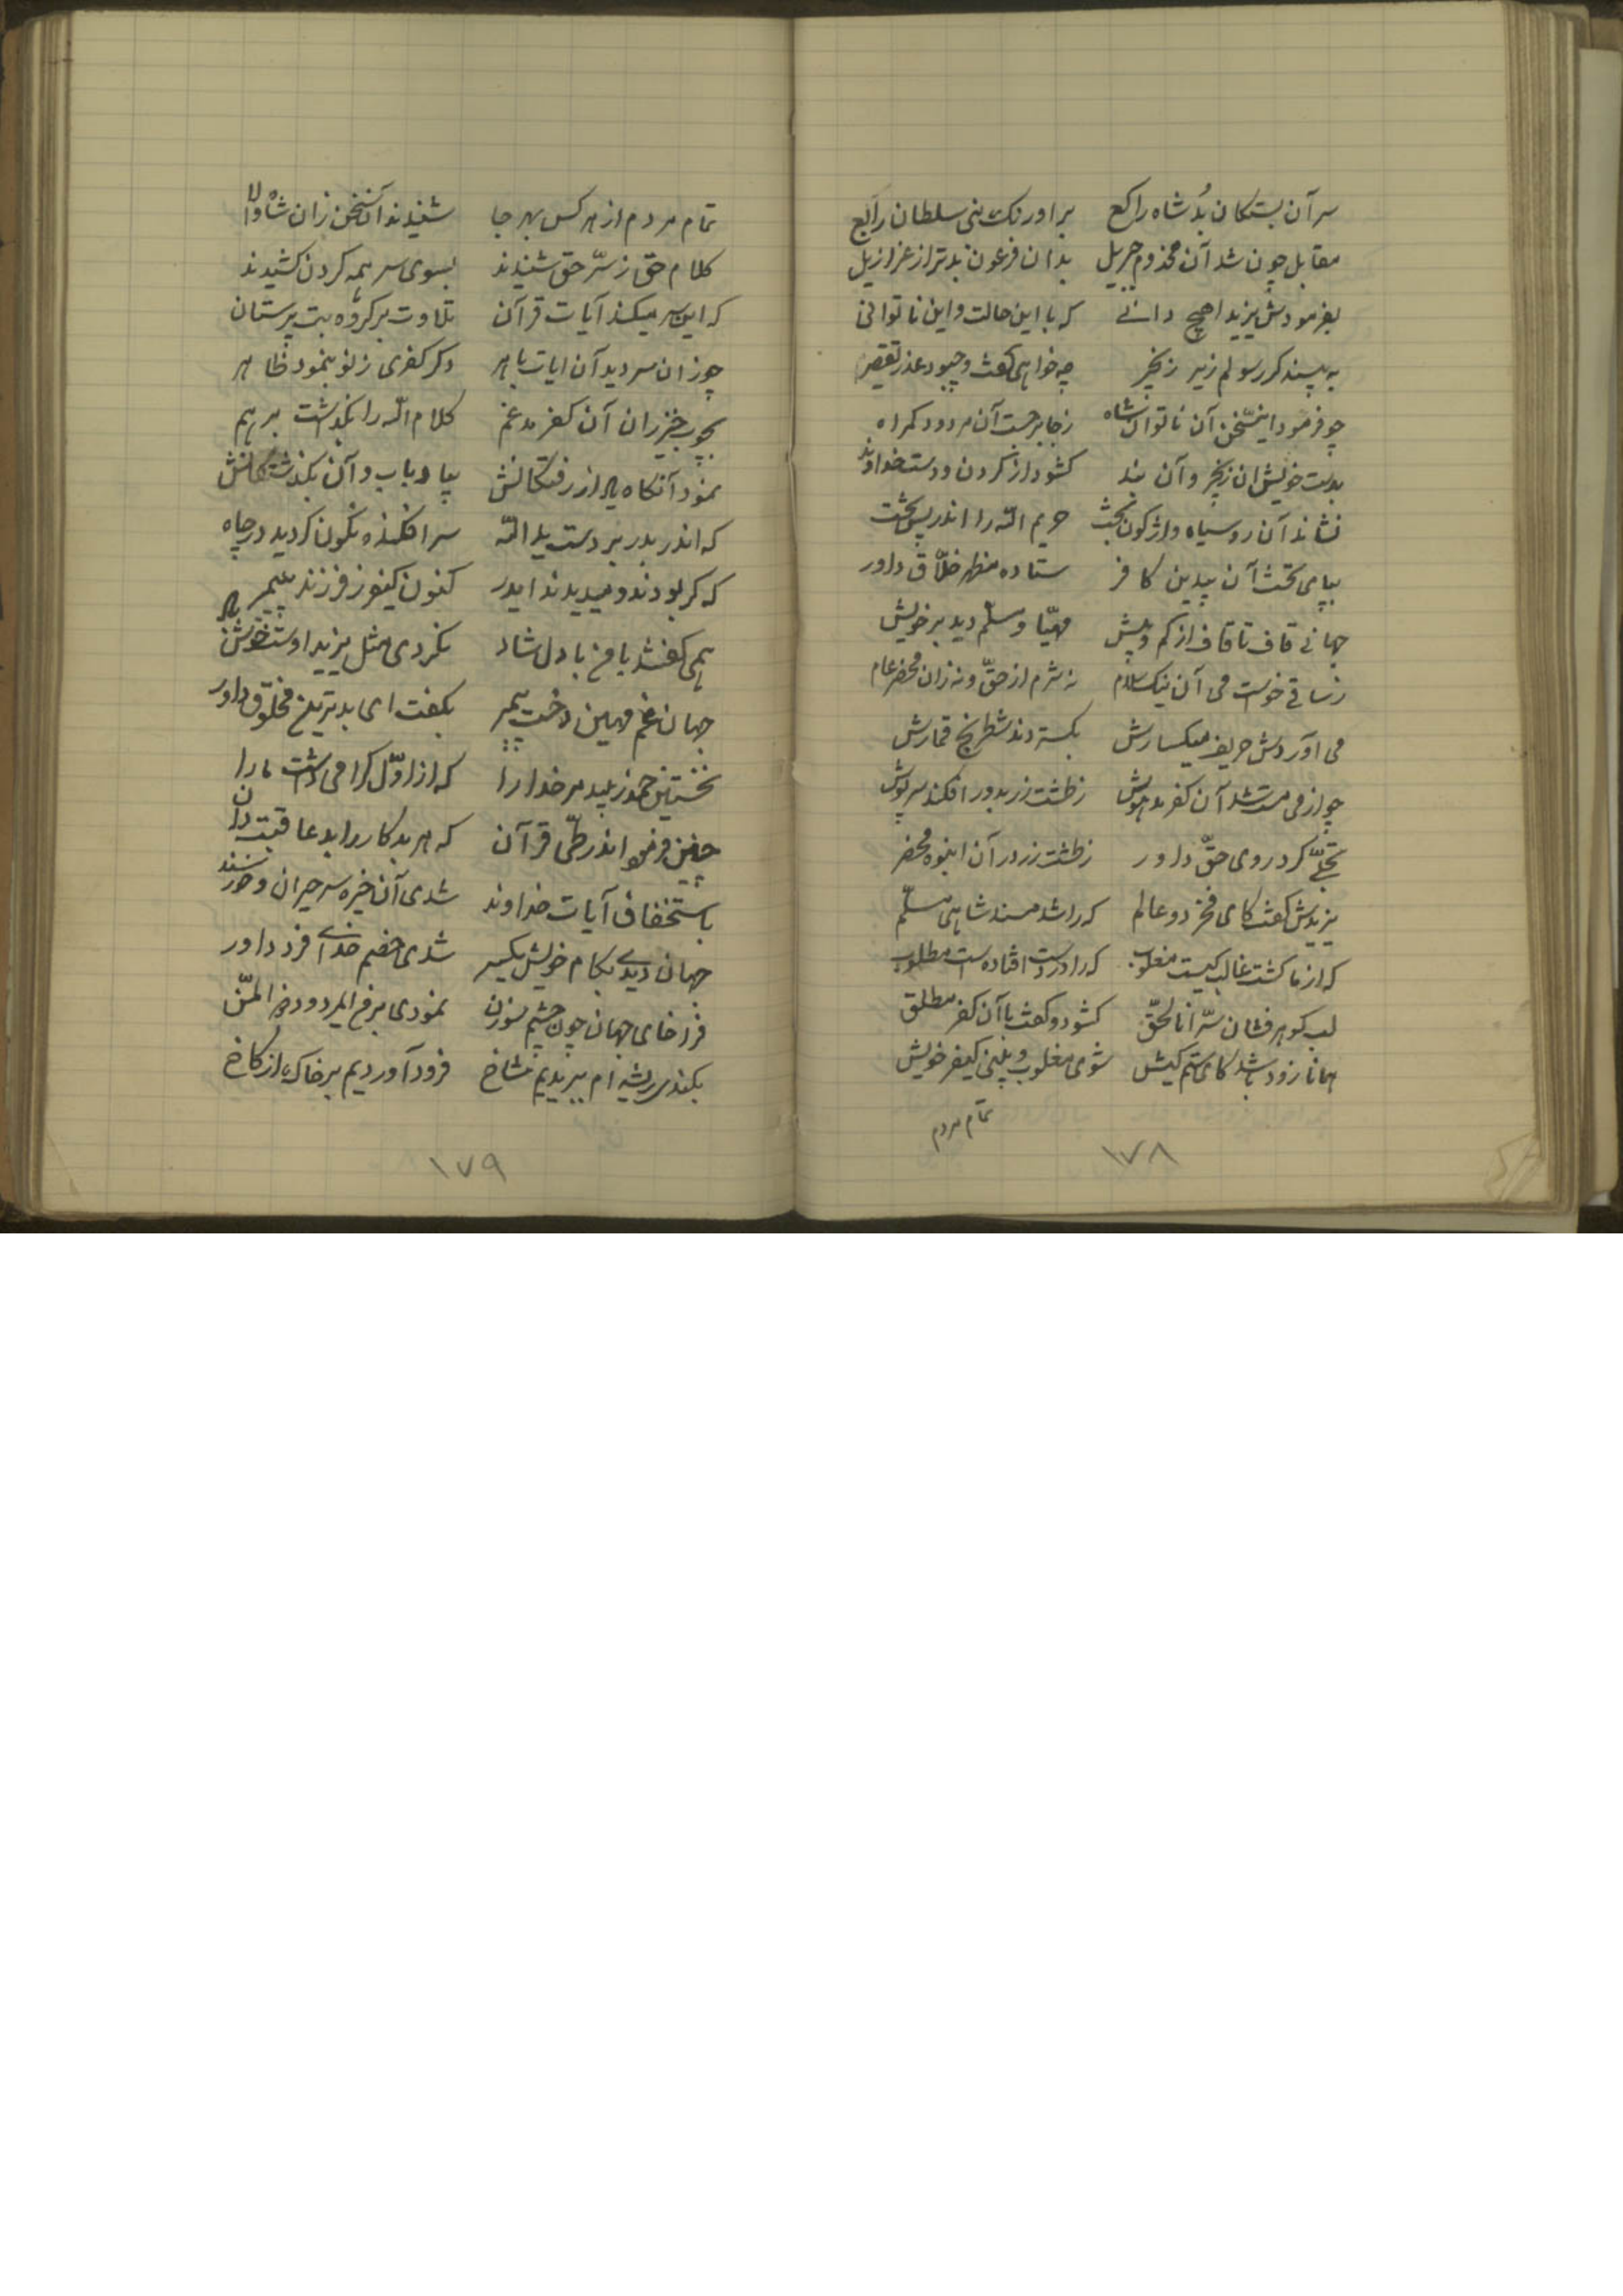 سر آن بستکان بُد شاه راکع برا ورنک بنی سلطان رابع
مقابل چون شد آن مخدوم جبریل بدان فرعون بدتر از عزازیل
بفرمودش یزیدا هیچ دانی که با این حالت و این ناتوانی
به بیند کر رسولم زیر زنجیر چه خواهی کفت و چبود عذر تقصیر
چو فرمود اینسخن آن ناتوان شاه زجا برجست آن مردود کمراه
بدست خویش ان زنجیر و آن بند کشود از کردن و دست خداوند
نشاند آن روسیاه واژکون بخت حریم اللّه را اندر پس تخت
بپای تخت آن بیدین کافر ستاده مظهر خلّاق داور
جهانی قاف تا قاف از کم و بیش مهیّا و مسلم دید بر خویش
زساقی خواست می آن نیک نه شرم از حقّ و نه زان محضر عام
می آوردش حریف میکسارش بکستردند شطرنج قمارش
چو از می مست شد آن کفر مدهوش زطشت زر بدور افکند سرپوش
تجلّی کرد روی حقّ داور زطشت زر در آن انبوه محضر
یزیدش کفت کای فخر دو عالم که را شد مسند شاهی مسلّم
که از ما کشت غالب کیست مغلوب که را در دست افتاده است مطلوب
لب کوهر فشان سرّ انا الحقّ کشود و کفت با آن کفر مطلق
همانا زود باشد کای ستم کیش شوی مغلوب و بینی کیفر خویش
تمام مردم
۱۷۸
تمام مردم از هر کس بهر جا شنیدند آن سخن زان شاه والا
کلام حق ز سرّ حق شنیدند بسوی سر همه کردن کشیدند
که این سر میکند آیات قرآن تلاوت بر کروه بت پرستان
چو زان سر دید آن ایات باهر دکر کفری زنو بنمود ظاهر
بچوب خیزران آن کفر مدغم کلام اللّه را بکذاشت بر هم
نمود آنکاه یاد از رفتکانش بیاد باب و آن بکذشتکانش
که اندر بدر بر دست ید اللّه سر افکنده نکون کردید در چاه
که کر بودند و میدیدند ایدر کنون کیفر ز فرزند پیمبر
همی کفتند یا فخ با دل شاد نکردی مثل یزیدا دست خوش
جهان غم مهین دخت پیمبر بکفت ای بدترین مخلوق داور
نخستین حمد زیبد مر خدا را که از اوّل کرامی داشت ما را
چنین فرمود اندر طیّ قرآن که هر بدکار را بد عاقبت دان
باستخفاف آیات خداوند شدی آن خیره سر حیران و خرسند
جهان دیدی بکام خویش یکسر شدی خصم خدای فرد داور
فراخای جهان چون چشم سوزن نمودی بر رخ ایمردود ذو المنّ
بکندی ریشه ام ببریدیم شاخ فرود آوردیم بر خاک از کاخ
۱۷۹